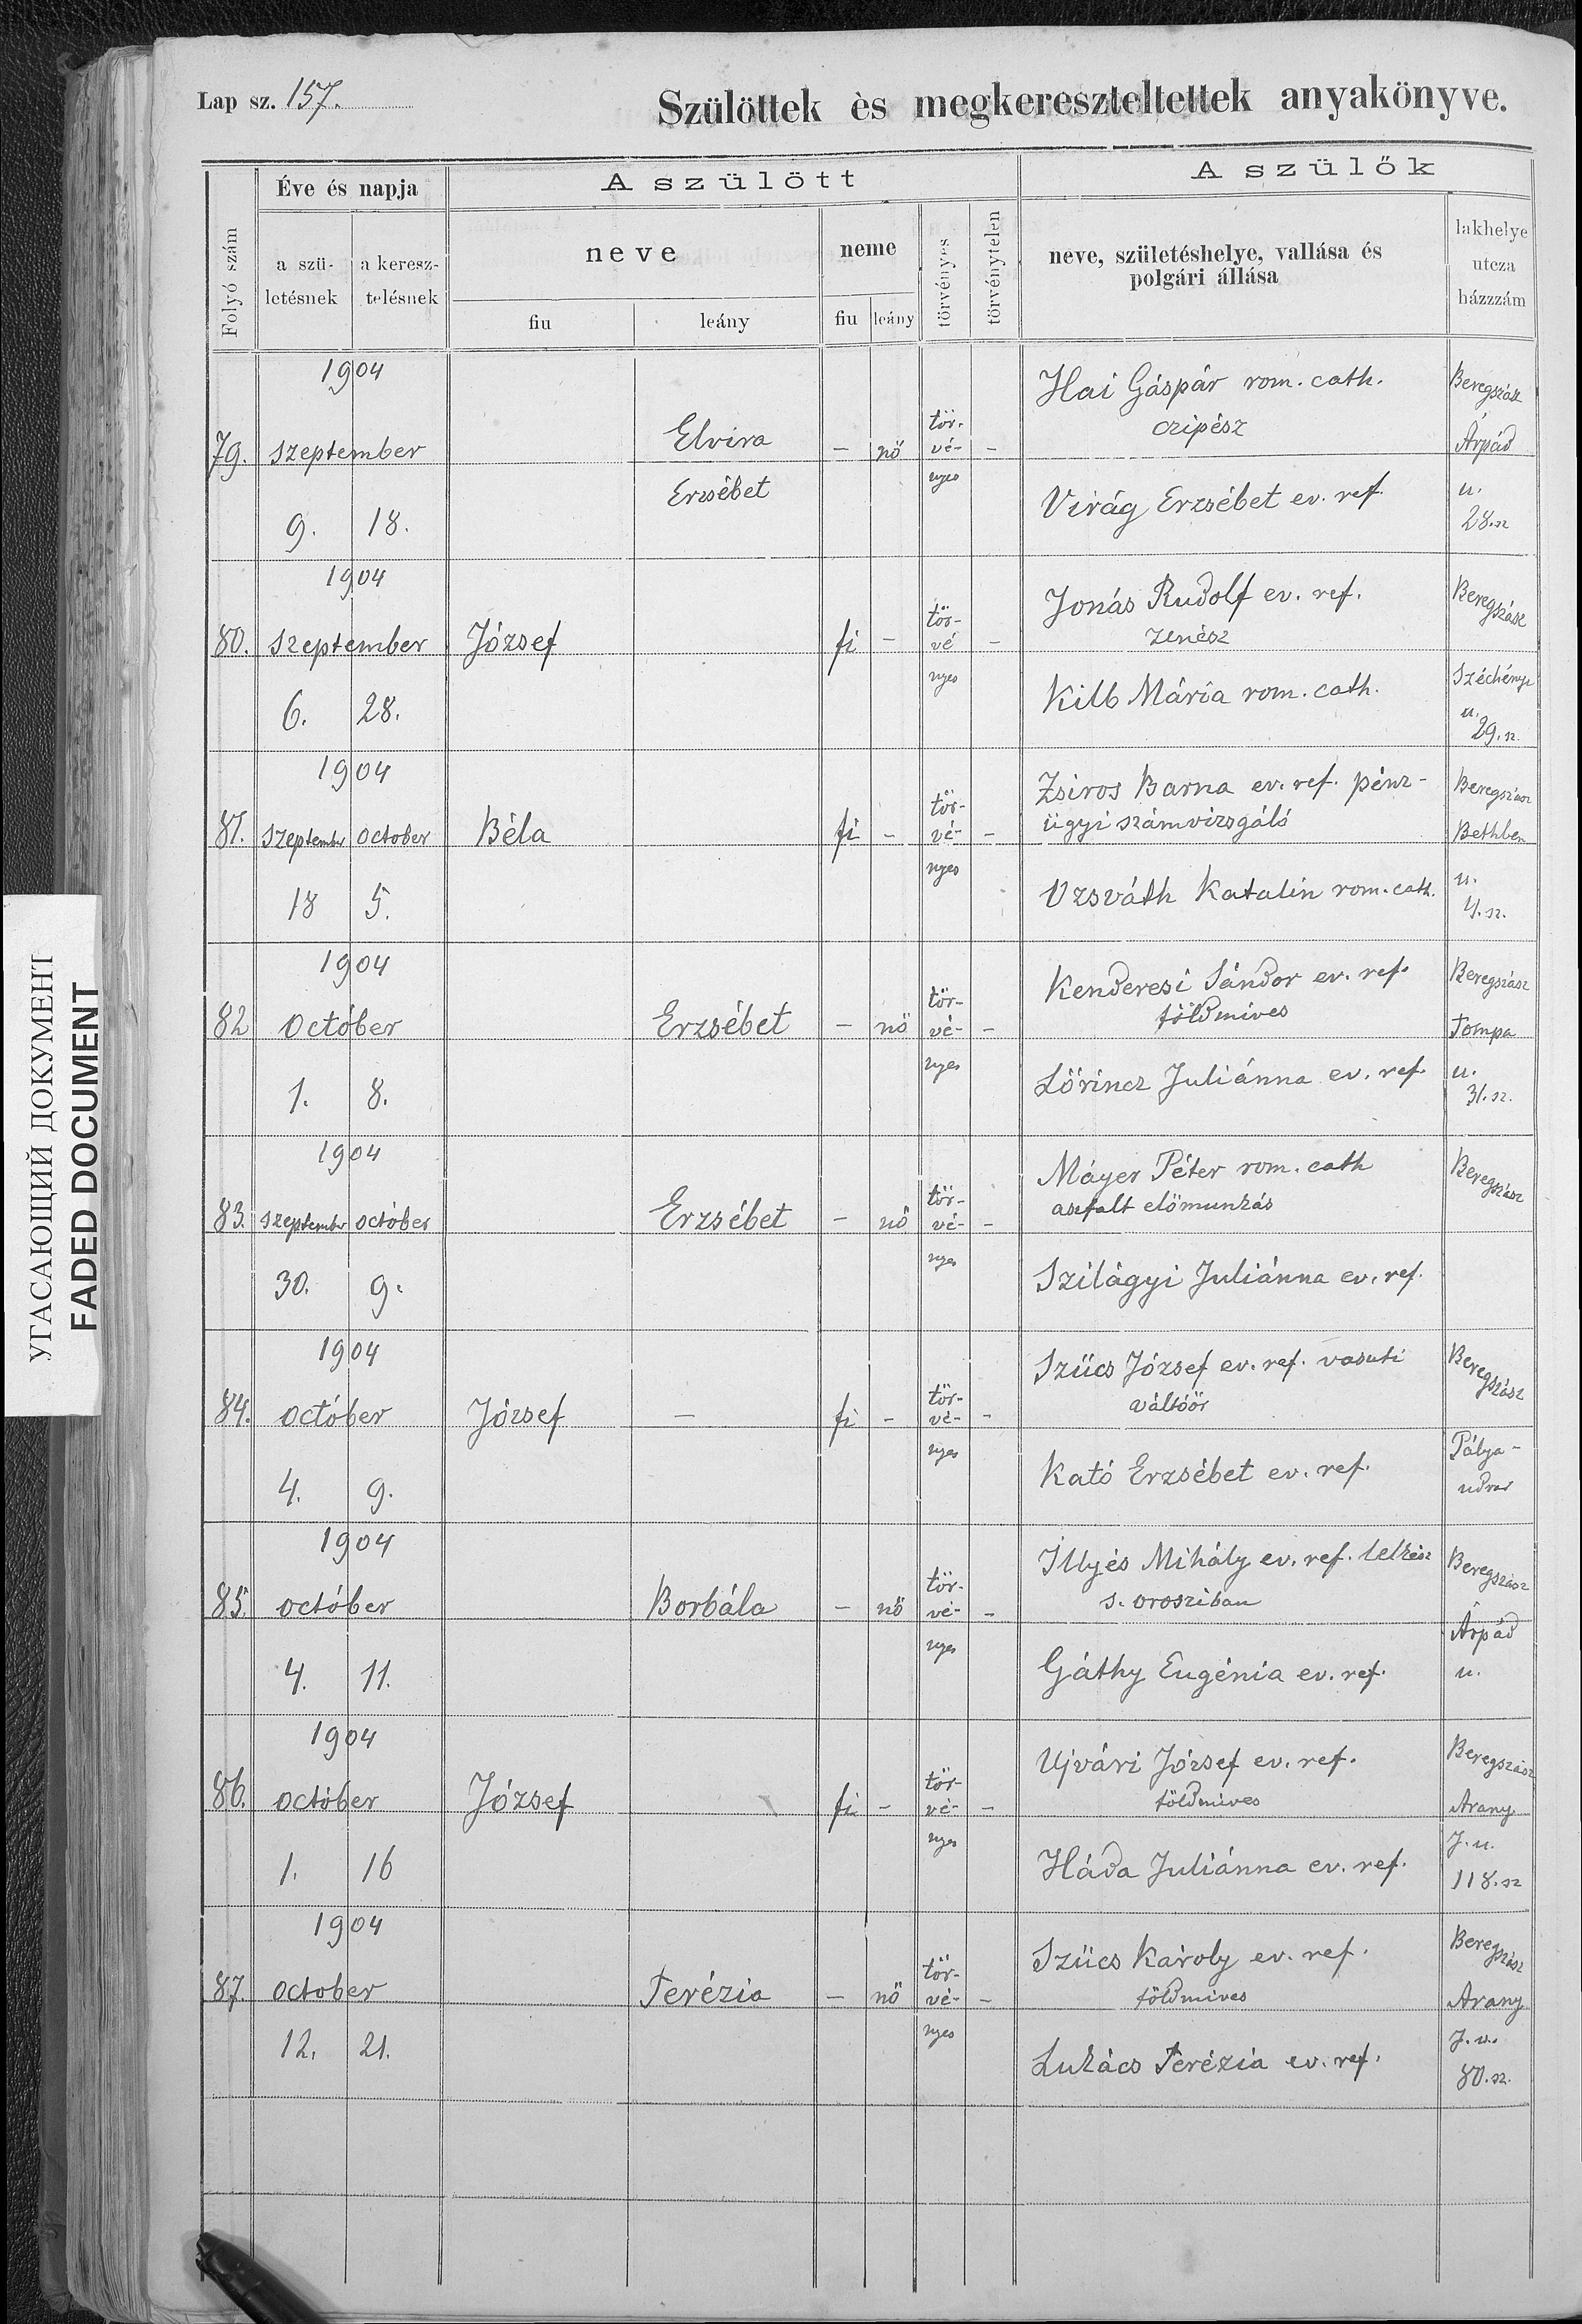 Lap sz. 157.
Szülöttek ès megkereszteltettek anyakönyve.
Folyó szám
Éve és napja
a szü-
letésnek
a keresz-
telésnek
A szülött
neve
fiu
leány
neme
fiu
leány
törvényes
törvénytelen
A szülők
neve, születéshelye, vallása és
polgári állása
lakhelye
utcza
házzzám
79.
1904
szeptember
9. 18.
Elvira
Erzsébet
– nő
tör-
vé-
nyes
–
Hai Gáspár rom. cath.
czipész
Virág Erzsébet ev. ref.
Beregszász
Árpád
u.
28. sz
80.
1904
szeptember
6. 28.
József
fi –
tör-
vé
nyes
–
Jonás Rudolf ev. ref.
zenész
Kilb Mária rom. cath.
Beregszász
Széchényi
u.
29. sz.
81.
1904
szeptember october
18 5.
Béla
fi –
tör-
vé-
nyes
–
Zsiros Barna ev. ref. pénz-
ügyi számvizsgáló
Uzsváth Katalin rom. cath.
Beregszász
Bethlen
u.
4. sz.
82
1904
octóber
1. 8.
Erzsébet
– nő
tör-
vé-
nyes
–
Kenderesi Sándor ev. ref.
földmives
Lőrincz Juliánna ev. ref.
Beregszász
Tompa
u.
31. sz.
83.
1904
szeptember octóber
30. 9.
Erzsébet
– nő
tör-
vé-
nyes
–
Máyer Péter rom. cath
asfalt előmunkás
Szilágyi Juliánna ev. ref.
Beregszász
84.
1904
octóber
4. 9.
József
–
fi –
tör-
vé-
nyes
–
Szücs József ev. ref. vasuti
váltóőr
Kató Erzsébet ev. ref.
Beregszász
Pálya-
udvar
85
1904
octóber
4. 11.
Borbála
– nő
tör-
vé-
nyes
–
Illyés Mihály ev. ref. lelkész
s. orosziban
Gáthy Eugénia ev. ref.
Beregszász
Árpád
u.
86.
1904
octóber
1. 16
József
fi –
tör-
vé-
nyes
–
Ujvári József ev. ref.
földmives
Háda Juliánna ev. ref.
Beregszász
Arany
J. u.
118. sz
87.
1904
october
12. 21.
Terézia
– nő
tör-
vé-
nyes
–
Szücs Károly ev. ref.
földmives
Lukács Terézia ev. ref.
Beregszász
Arany
J. u.
80. sz.
УГАСАЮЩИЙ ДОКУМЕНТ
FADED DOCUMENT